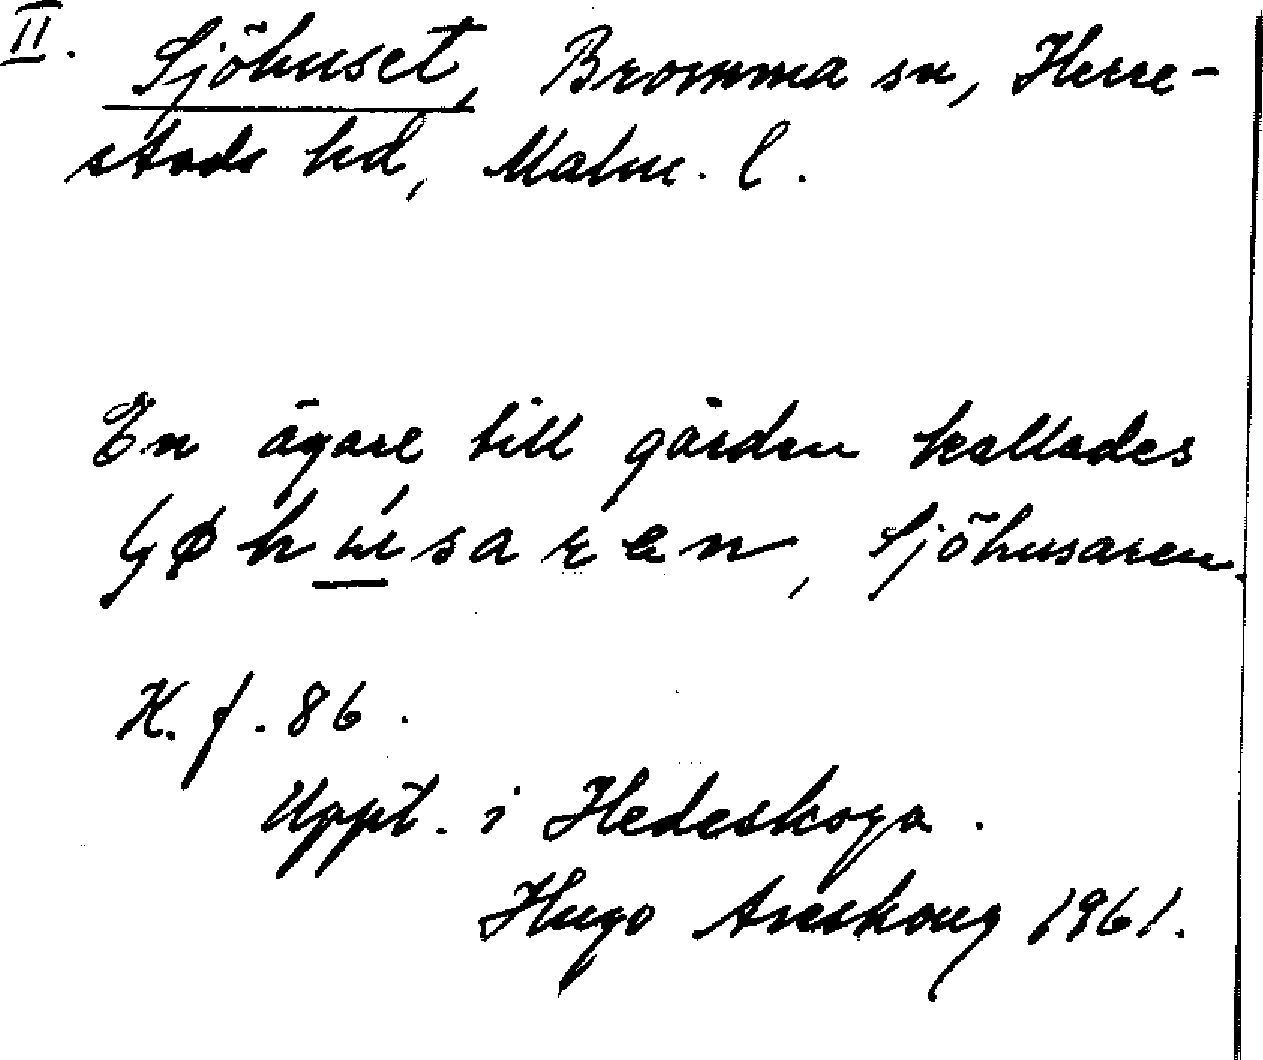 II. Sjöhuset, Bromma sn, Herre-
stads hd, Malm. l.
En ägare till gården kallades
ʃøhúsaren, Sjöhusaren.
K. f. 86.
Uppt. i Hedeskoga.
Hugo Areskoug 1961.